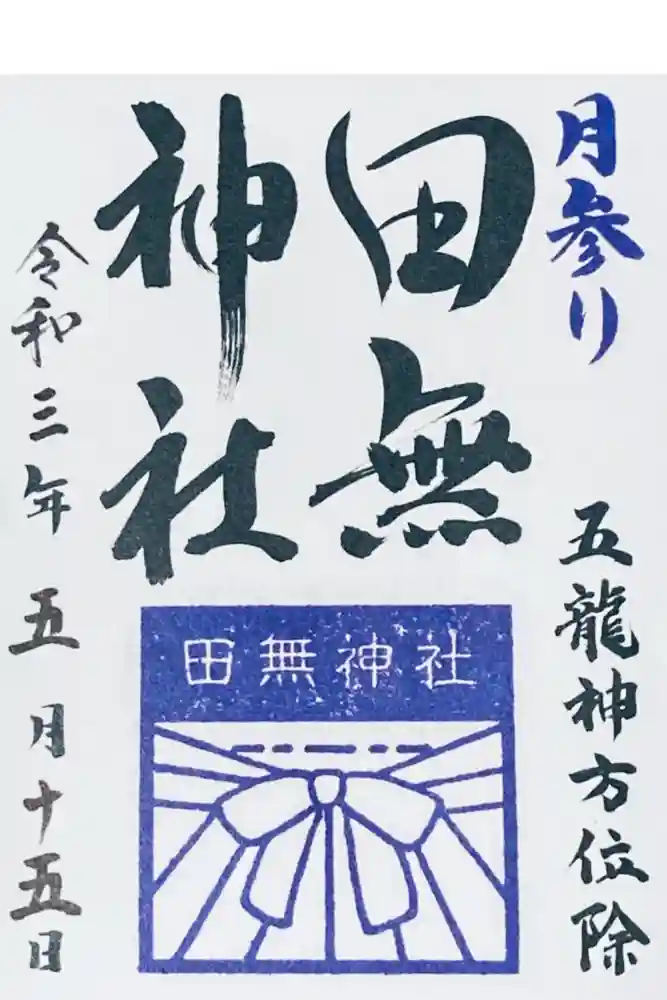 月参り
五龍神方位除
田無
神社
田無神社
令和三年 五月十五日